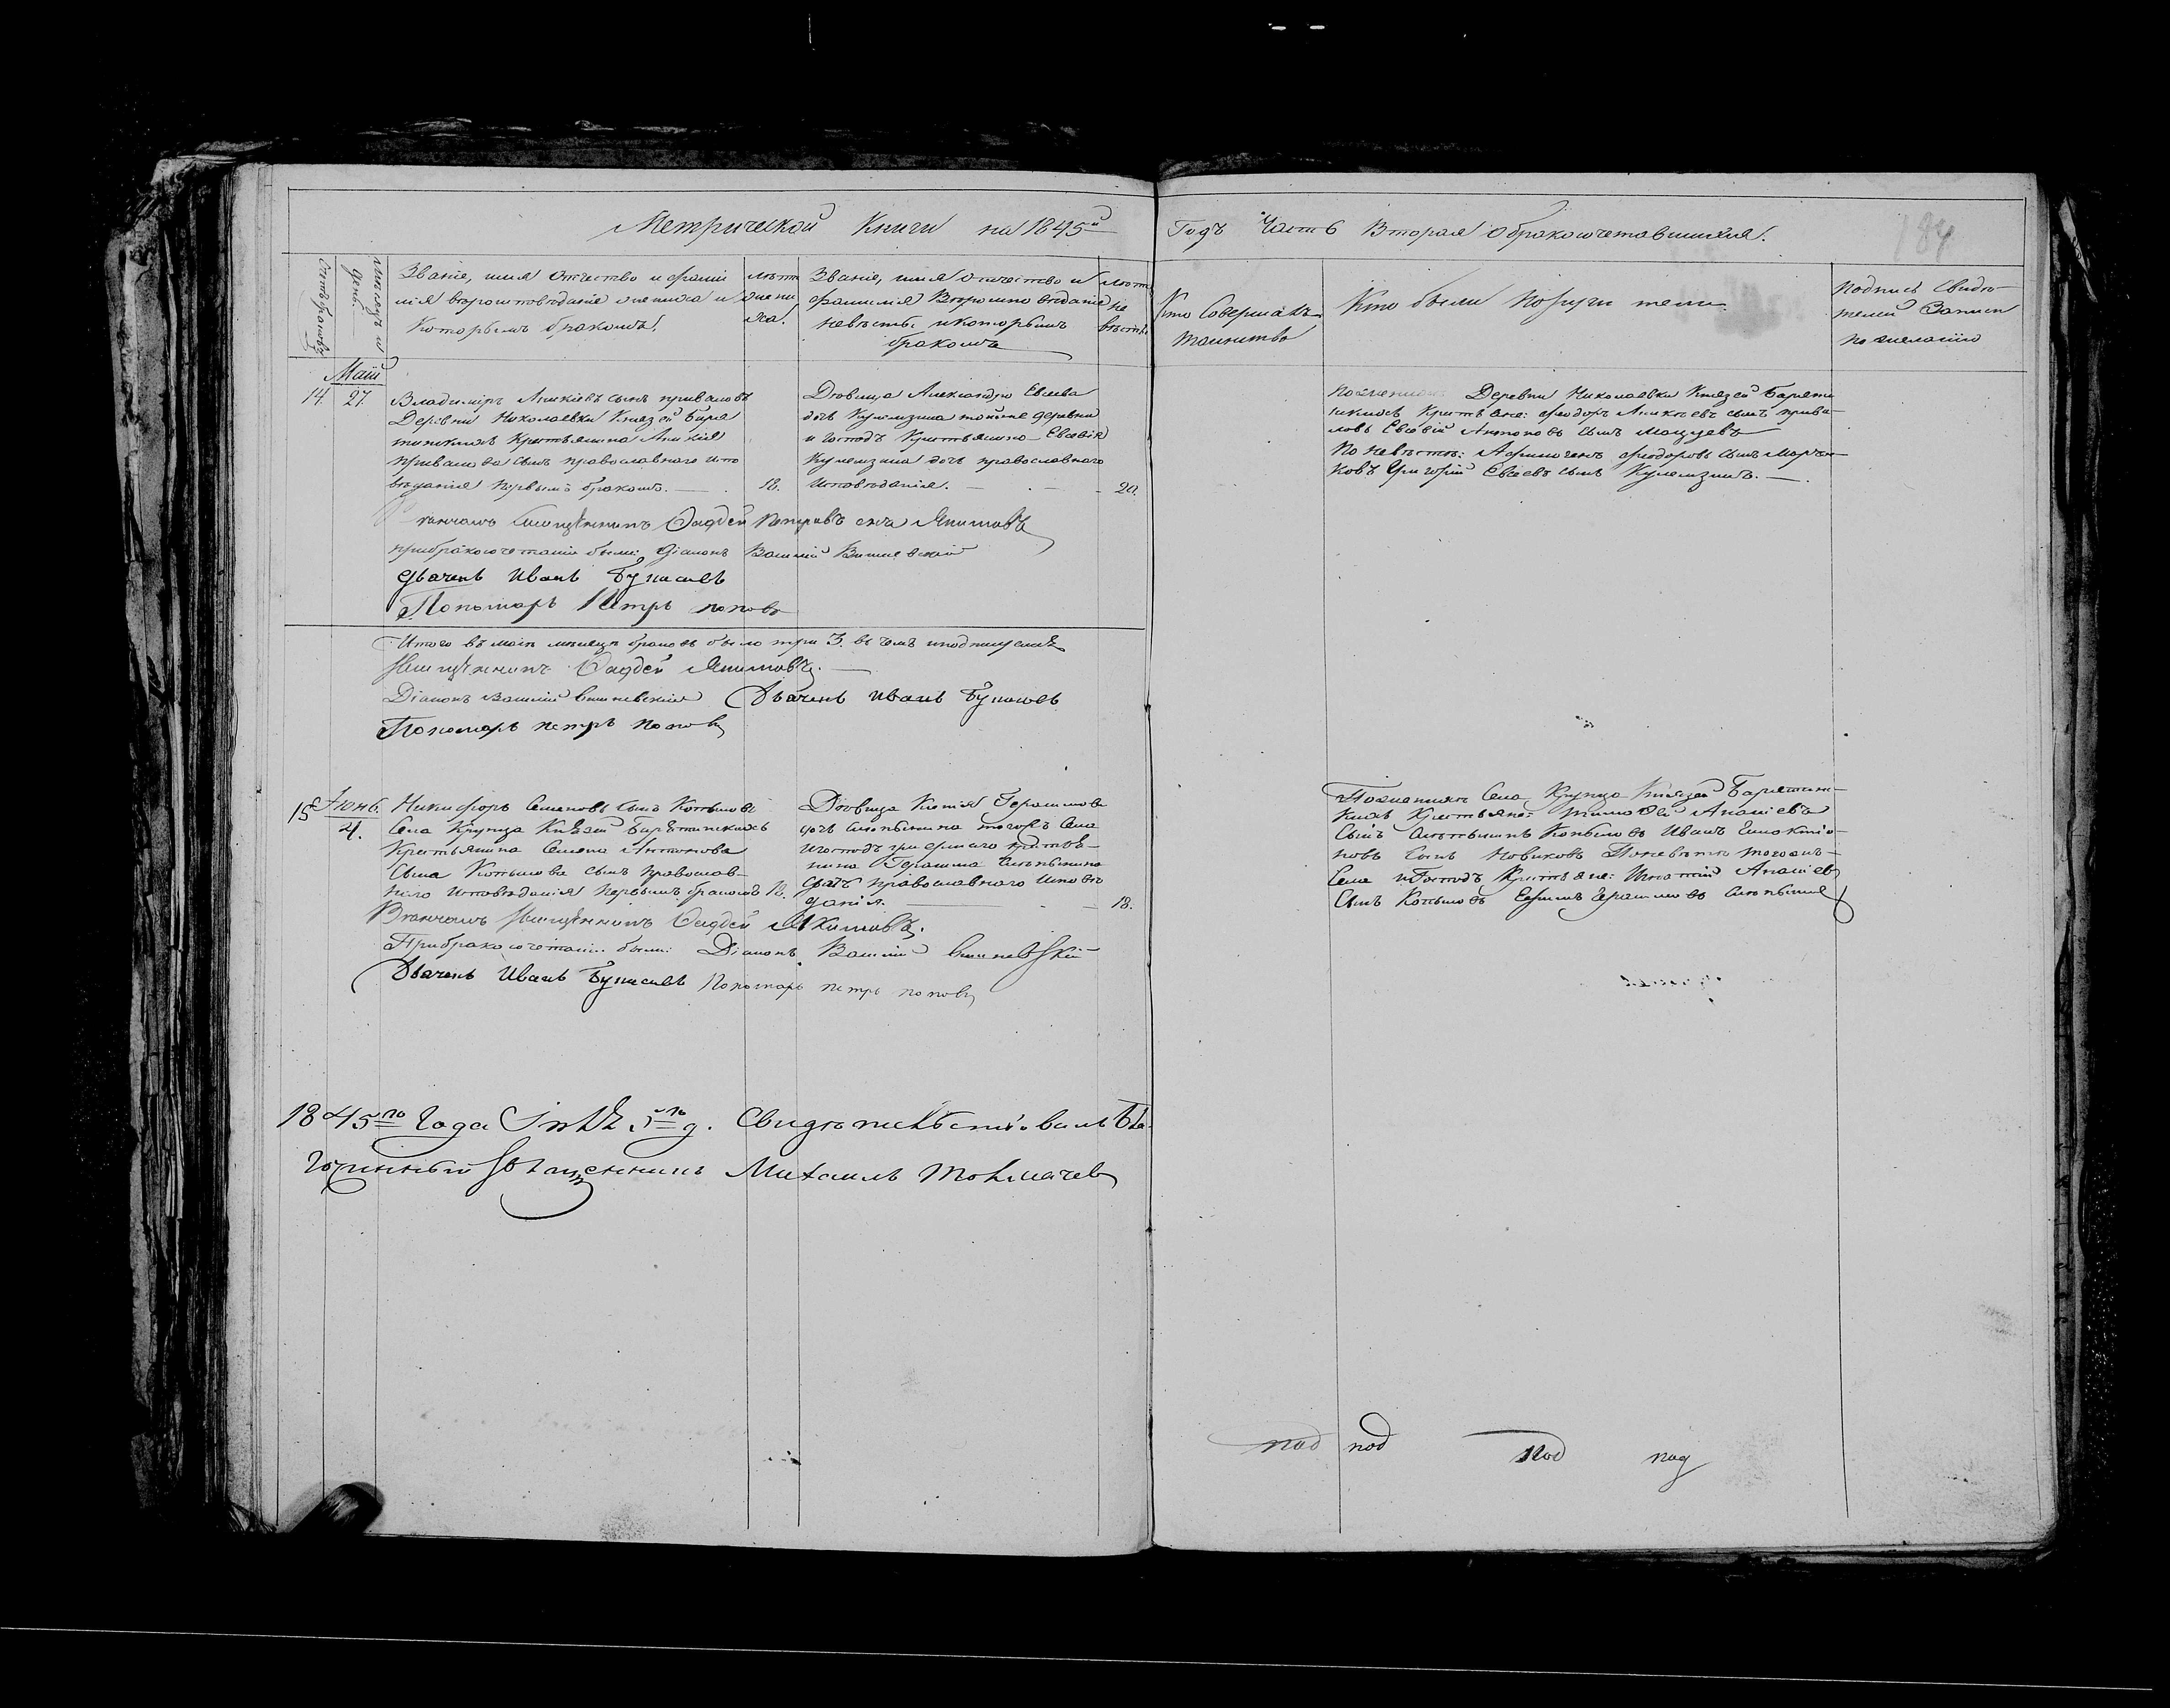 Метрической Книги на 1845й
Годъ Часть Вторая о бракосочетавшихся.
184
Счетъ браковъ
мѣсяцъ и день.
Званіе, имя отчество и фами
лія вѣроисповѣданіе жениха и
которымъ бракомъ.
лѣта
жени
ха.
Званіе, имя отчество и
фамилія Вѣроисповѣданіе
невѣсты и которымъ
бракомъ
лѣта
не
вѣсты.
Кто Совершалъ
таинство
Кто были поручители
подпись свидѣ-
телей Записи
по желанію
Маій
14. 27.
Владимиръ Аникіевъ сынъ приваловъ
Деревни Николаевки Князей Баря
тинскихъ Крестьянина Аникія
Привалова сынъ православнаго испо
вѣданія первымъ бракомъ. 18.
Дѣвица Александра Евсева
дочь Кулемзина тойже деревни
и господъ Крестьянина Евсевія
Кулемзина дочь православнаго
Исповѣданія. 20.
Деревни Николаевки Князей Баряти
нскихъ Крестьяне: Феодоръ Аникіевъ сынъ прива-
ловъ Евсевій Антоновъ сынъ
По невѣстѣ: Феодоровъ сынъ
ковъ Григорій Евсеевъ сынъ Кулемзинъ.
Вѣнчалъ Священникъ Фаддей Петровъ сынъ Якимовъ
прибракосочетаніи были: Діаконъ Василій
Дьячекъ Иванъ
Пономарь Петръ поповъ
Итого въ маіи мѣсяцѣ браковъ было три 3. въ чемъ и подписуемся
Священникъ Фаддей Якимовъ.
Діаконъ Василій Дьячекъ Иванъ
Пономарь петръ Поповъ
15 Іюнь 4.
Никифоръ Семеновъ сынъ Копыловъ
Села Крупца Князей Барятинскихъ
Крестьянина Семена Антонова
Сына Копылова сынъ православ-
наго исповѣданія первымъ бракомъ 18.
Дѣвица Герасимова
дочь тогожъ села
игосподъ крестья-
нина Герасима
дочь православнаго Исповѣ
данія. 18.
По женихѣ Села Крупца Князей Барятин-
скихъ Крестьяне: Тимофей Ананіевъ
Сынъ Копыловъ Иванъ
новъ Сынъ Новиковъ По невѣстѣ тогожъ
Села игосподъ Крестьяне: Игнатій Ананіевъ
Сынъ Копыловъ Ефимъ Герасимовъ
Вѣнчалъ Священникъ Фаддей Якимовъ.
Прибракосочетаніи были: Діаконъ Василій
Дьячекъ Иванъ Пономарь петръ поповъ
1845го Года 5го д. Свидѣтельствовалъ Бла-
гочинный Священникъ Михаилъ Толмачевъ
под под под под